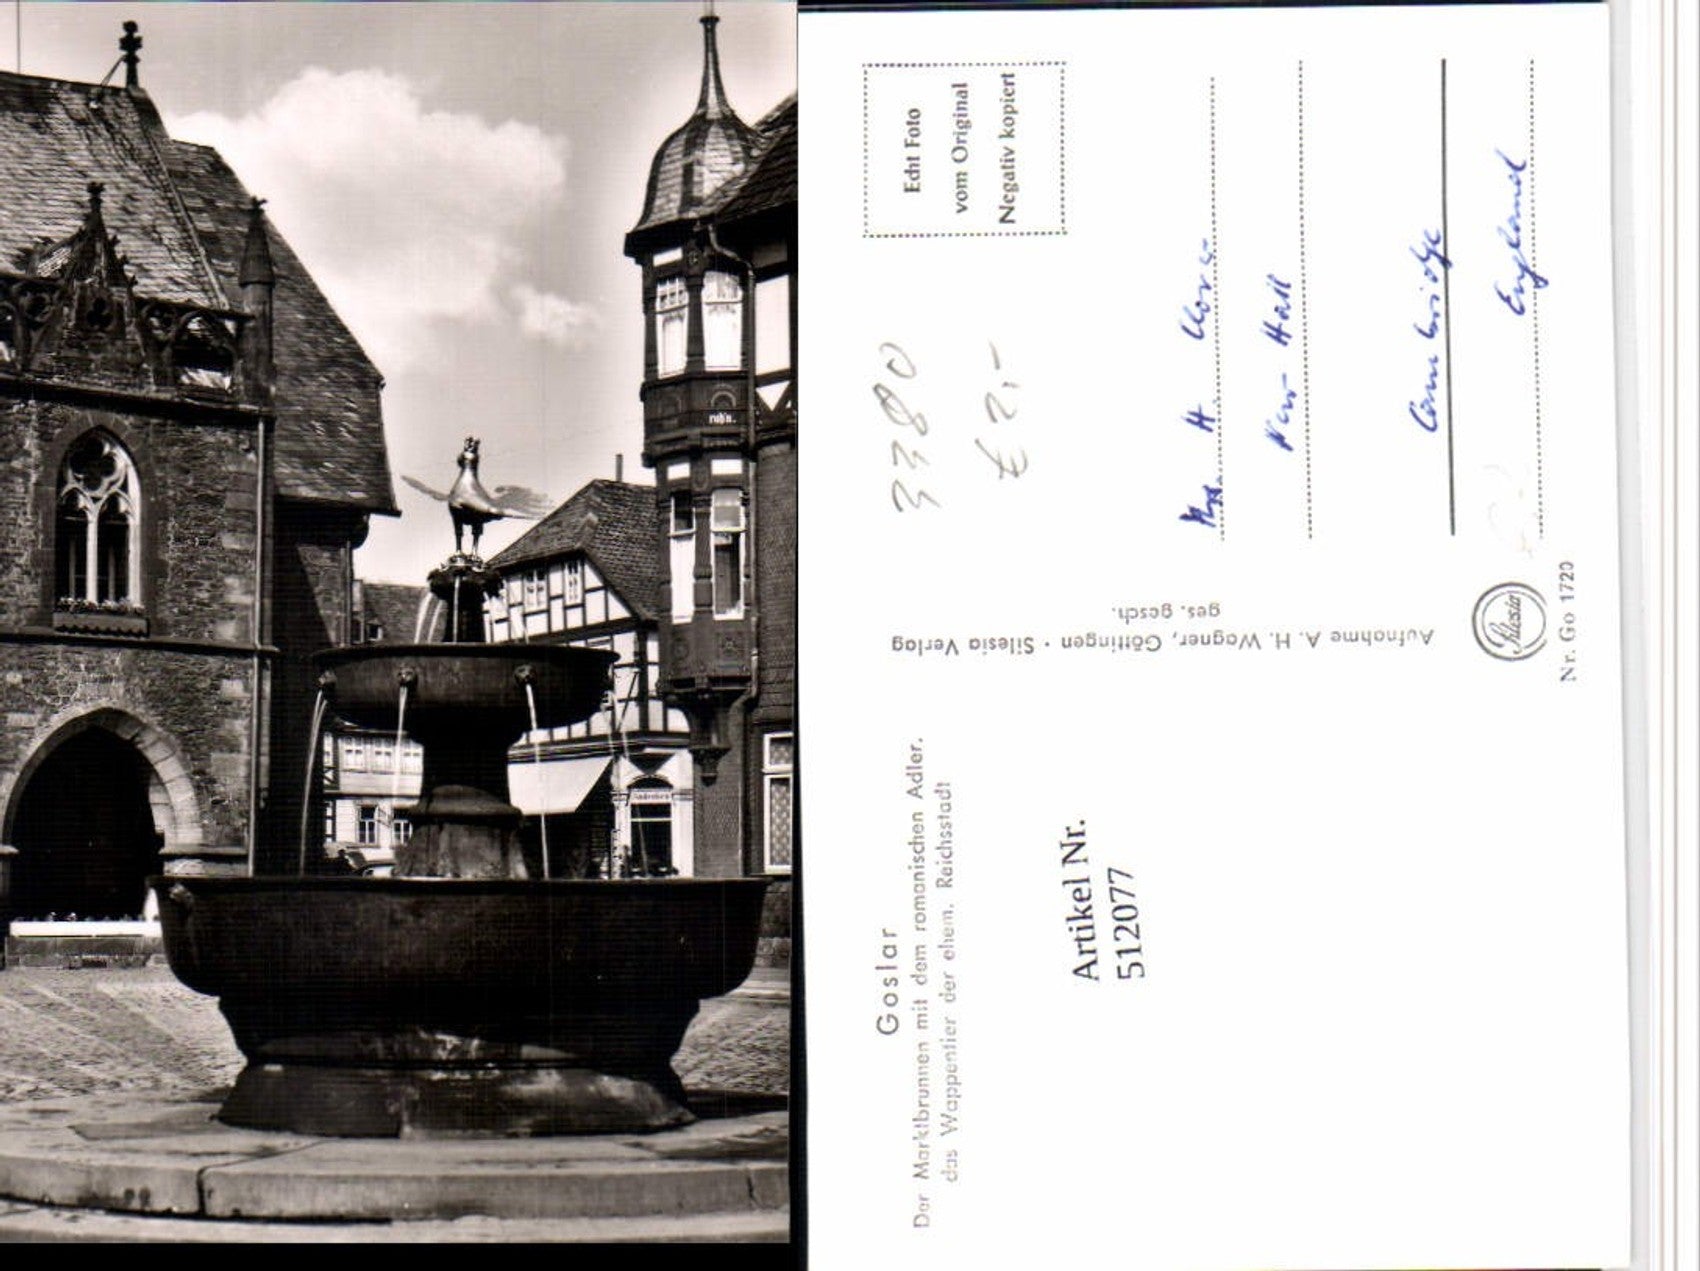 Goslar
Der Marktbrunnen mit dem romanischen Adler.
das Wappentier der ehem. Reichsstadt
Artikel Nr.
512077
Aufnahme A. H. Wagner, Göttingen · Silesia Verlag
ges. gesch.
Silesia
Nr. Go 1720
3380
€ 2,-
Echt Foto
vom Original
Negativ kopiert
H.
New Hall
Cambridge
England